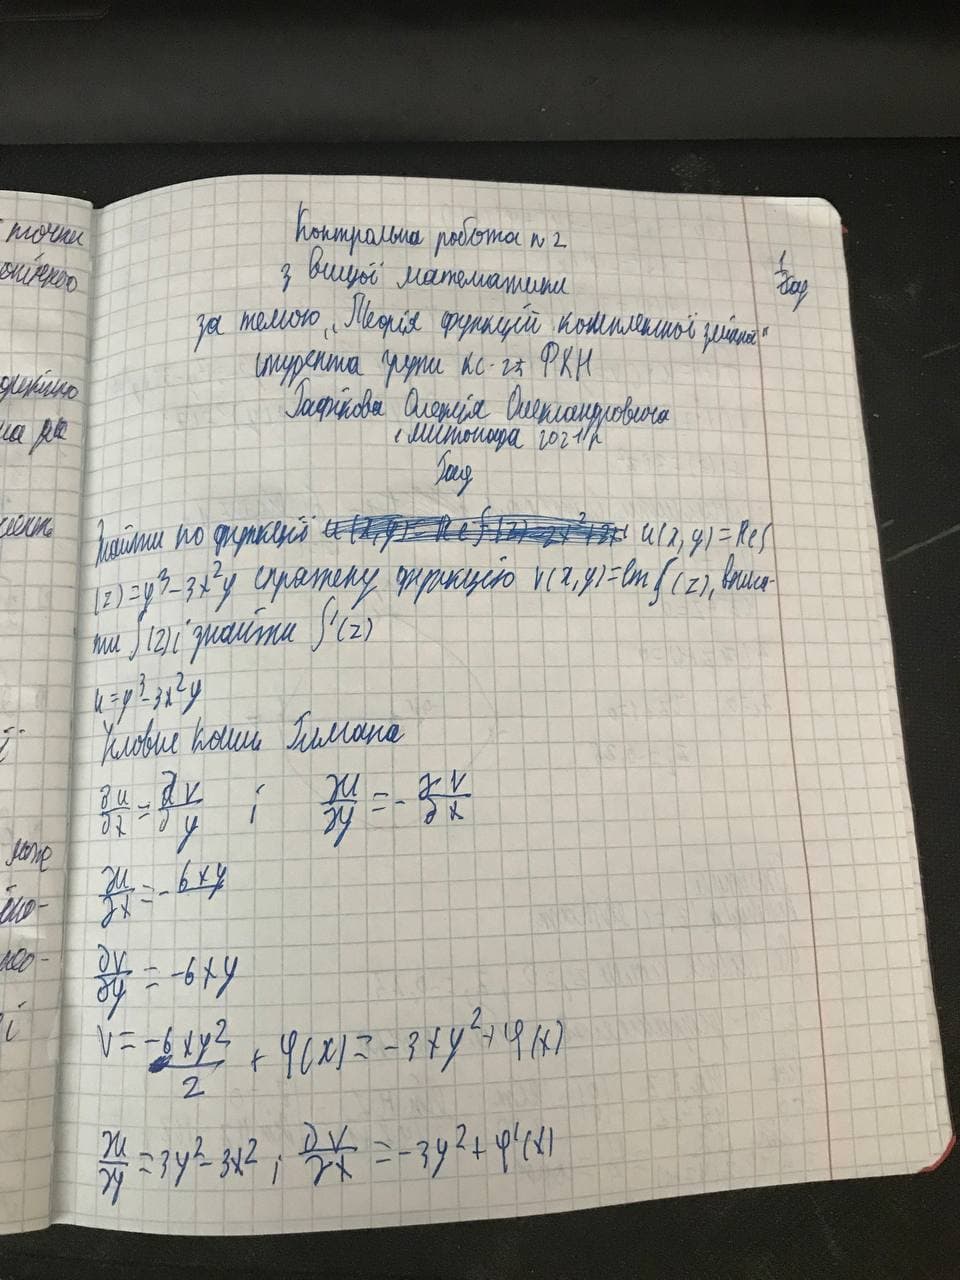 точки
Контрольна робота n 2
з вищої математики
за темою „Теорія функцій комплексної змінної"
студента групи КС-21 ФКН
Олексія Олександровича
листопада 2021 р
на
Знайти по функції u(x,y)=Ref
(z)=y³-3x²y спряжену функцію v(x,y)=Imf(z),
ти f(z) і знайти f'(z)
u=y³-3x²y
Умови Коши Римана
∂u/∂x=∂v/∂y ; ∂u/∂y=-∂v/∂x
∂u/∂x=-6xy
може
∂v/∂y=-6xy
V=-6xy²/2+φ(x)=-3xy²+φ(x)
∂u/∂y=3y²-3x²; ∂v/∂x=-3y²+φ'(x)